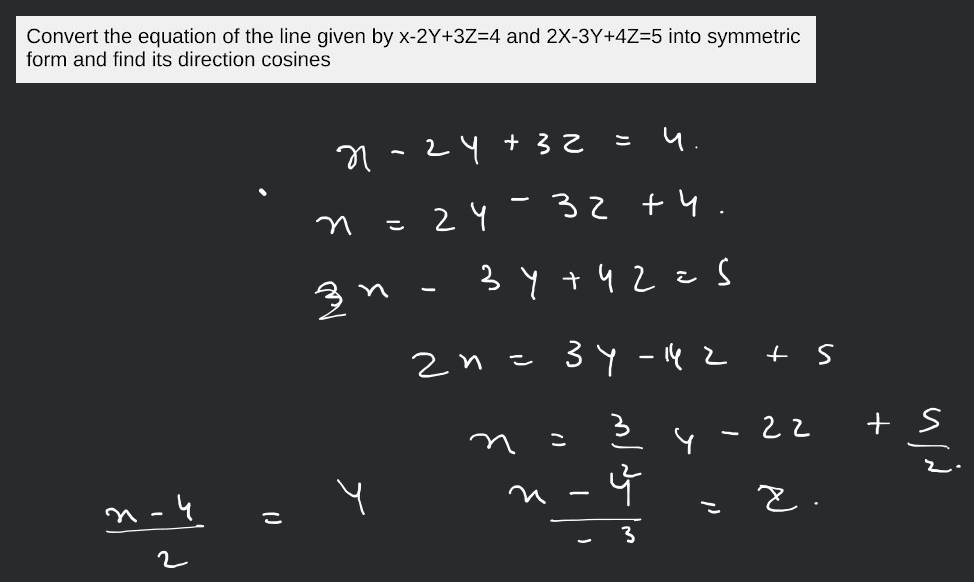 Convert the equation of the line given by x-2Y+3Z=4 and 2X-3Y+4Z=5 into symmetric
form and find its direction cosines
x - 2y + 3z = 4.
x = 2y - 3z + 4.
2x - 3y + 4z = 5
2x = 3y - 4z + 5
x = 3/2 y - 2z + 5/2.
(x - 4)/2 = y (x - 4)/-3 = z.